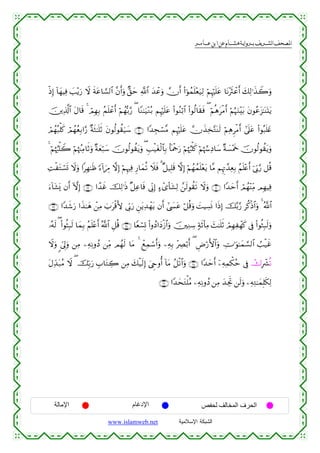 المصحف الشريف برواية هشام عن ابن عامر
وَكَذَٰلِكَ أَعْثَرْنَا عَلَيْهِمْ لِيَعْلَمُوٓا۟ أَنَّ وَعْدَ ٱللَّهِ حَقٌّ وَأَنَّ ٱلسَّاعَةَ لَا رَيْبَ فِيهَآ إِذْ
يَتَنَٰزَعُونَ بَيْنَهُمْ أَمْرَهُمْ ۖ فَقَالُوا۟ ٱبْنُوا۟ عَلَيْهِم بُنْيَٰنًا ۖ رَّبُّهُمْ أَعْلَمُ بِهِمْ ۚ قَالَ ٱلَّذِينَ
غَلَبُوا۟ عَلَىٰٓ أَمْرِهِمْ لَنَتَّخِذَنَّ عَلَيْهِم مَّسْجِدًا سَيَقُولُونَ ثَلَٰثَةٌ رَّابِعُهُمْ كَلْبُهُمْ
وَيَقُولُونَ خَمْسَةٌ سَادِسُهُمْ كَلْبُهُمْ رَجْمًۢا بِٱلْغَيْبِ ۖ وَيَقُولُونَ سَبْعَةٌ وَثَامِنُهُمْ كَلْبُهُمْ ۚ
قُل رَّبِّىٓ أَعْلَمُ بِعِدَّتِهِم مَّا يَعْلَمُهُمْ إِلَّا قَلِيلٌ ۗ فَلَا تُمَارِ فِيهِمْ إِلَّا مِرَآءً ظَٰهِرًا وَلَا تَسْتَفْتِ
فِيهِم مِّنْهُمْ أَحَدًا وَلَا تَقُولَنَّ لِشَا۟ىْءٍ إِنِّى فَاعِلٌ ذَٰلِكَ غَدًا إِلَّآ أَن يَشَآءَ
ٱللَّهُ ۚ وَٱذْكُر رَّبَّكَ إِذَا نَسِيتَ وَقُلْ عَسَىٰٓ أَن يَهْدِيَنِ رَبِّى لِأَقْرَبَ مِنْ هَٰذَا رَشَدًا
وَلَبِثُوا۟ فِى كَهْفِهِمْ ثَلَٰثَ مِا۟ئَةٍ سِنِينَ وَٱزْدَادُوا۟ تِسْعًا قُلِ ٱللَّهُ أَعْلَمُ بِمَا لَبِثُوا۟ ۖ لَهُۥ
غَيْبُ ٱلسَّمَٰوَٰتِ وَٱلْأَرْضِ ۖ أَبْصِرْ بِهِۦ وَأَسْمِعْ ۚ مَا لَهُم مِّن دُونِهِۦ مِن وَلِىٍّ وَلَا
تُشْرِكْ فِى حُكْمِهِۦٓ أَحَدًا وَٱتْلُ مَآ أُوحِىَ إِلَيْكَ مِن كِتَابِ رَبِّكَ ۖ لَا مُبَدِّلَ
لِكَلِمَٰتِهِۦ وَلَن تَجِدَ مِن دُونِهِۦ مُلْتَحَدًا
الحرف المخالف لحفص الإدغام الإمالة
الشبكة الإسلامية www.islamweb.net